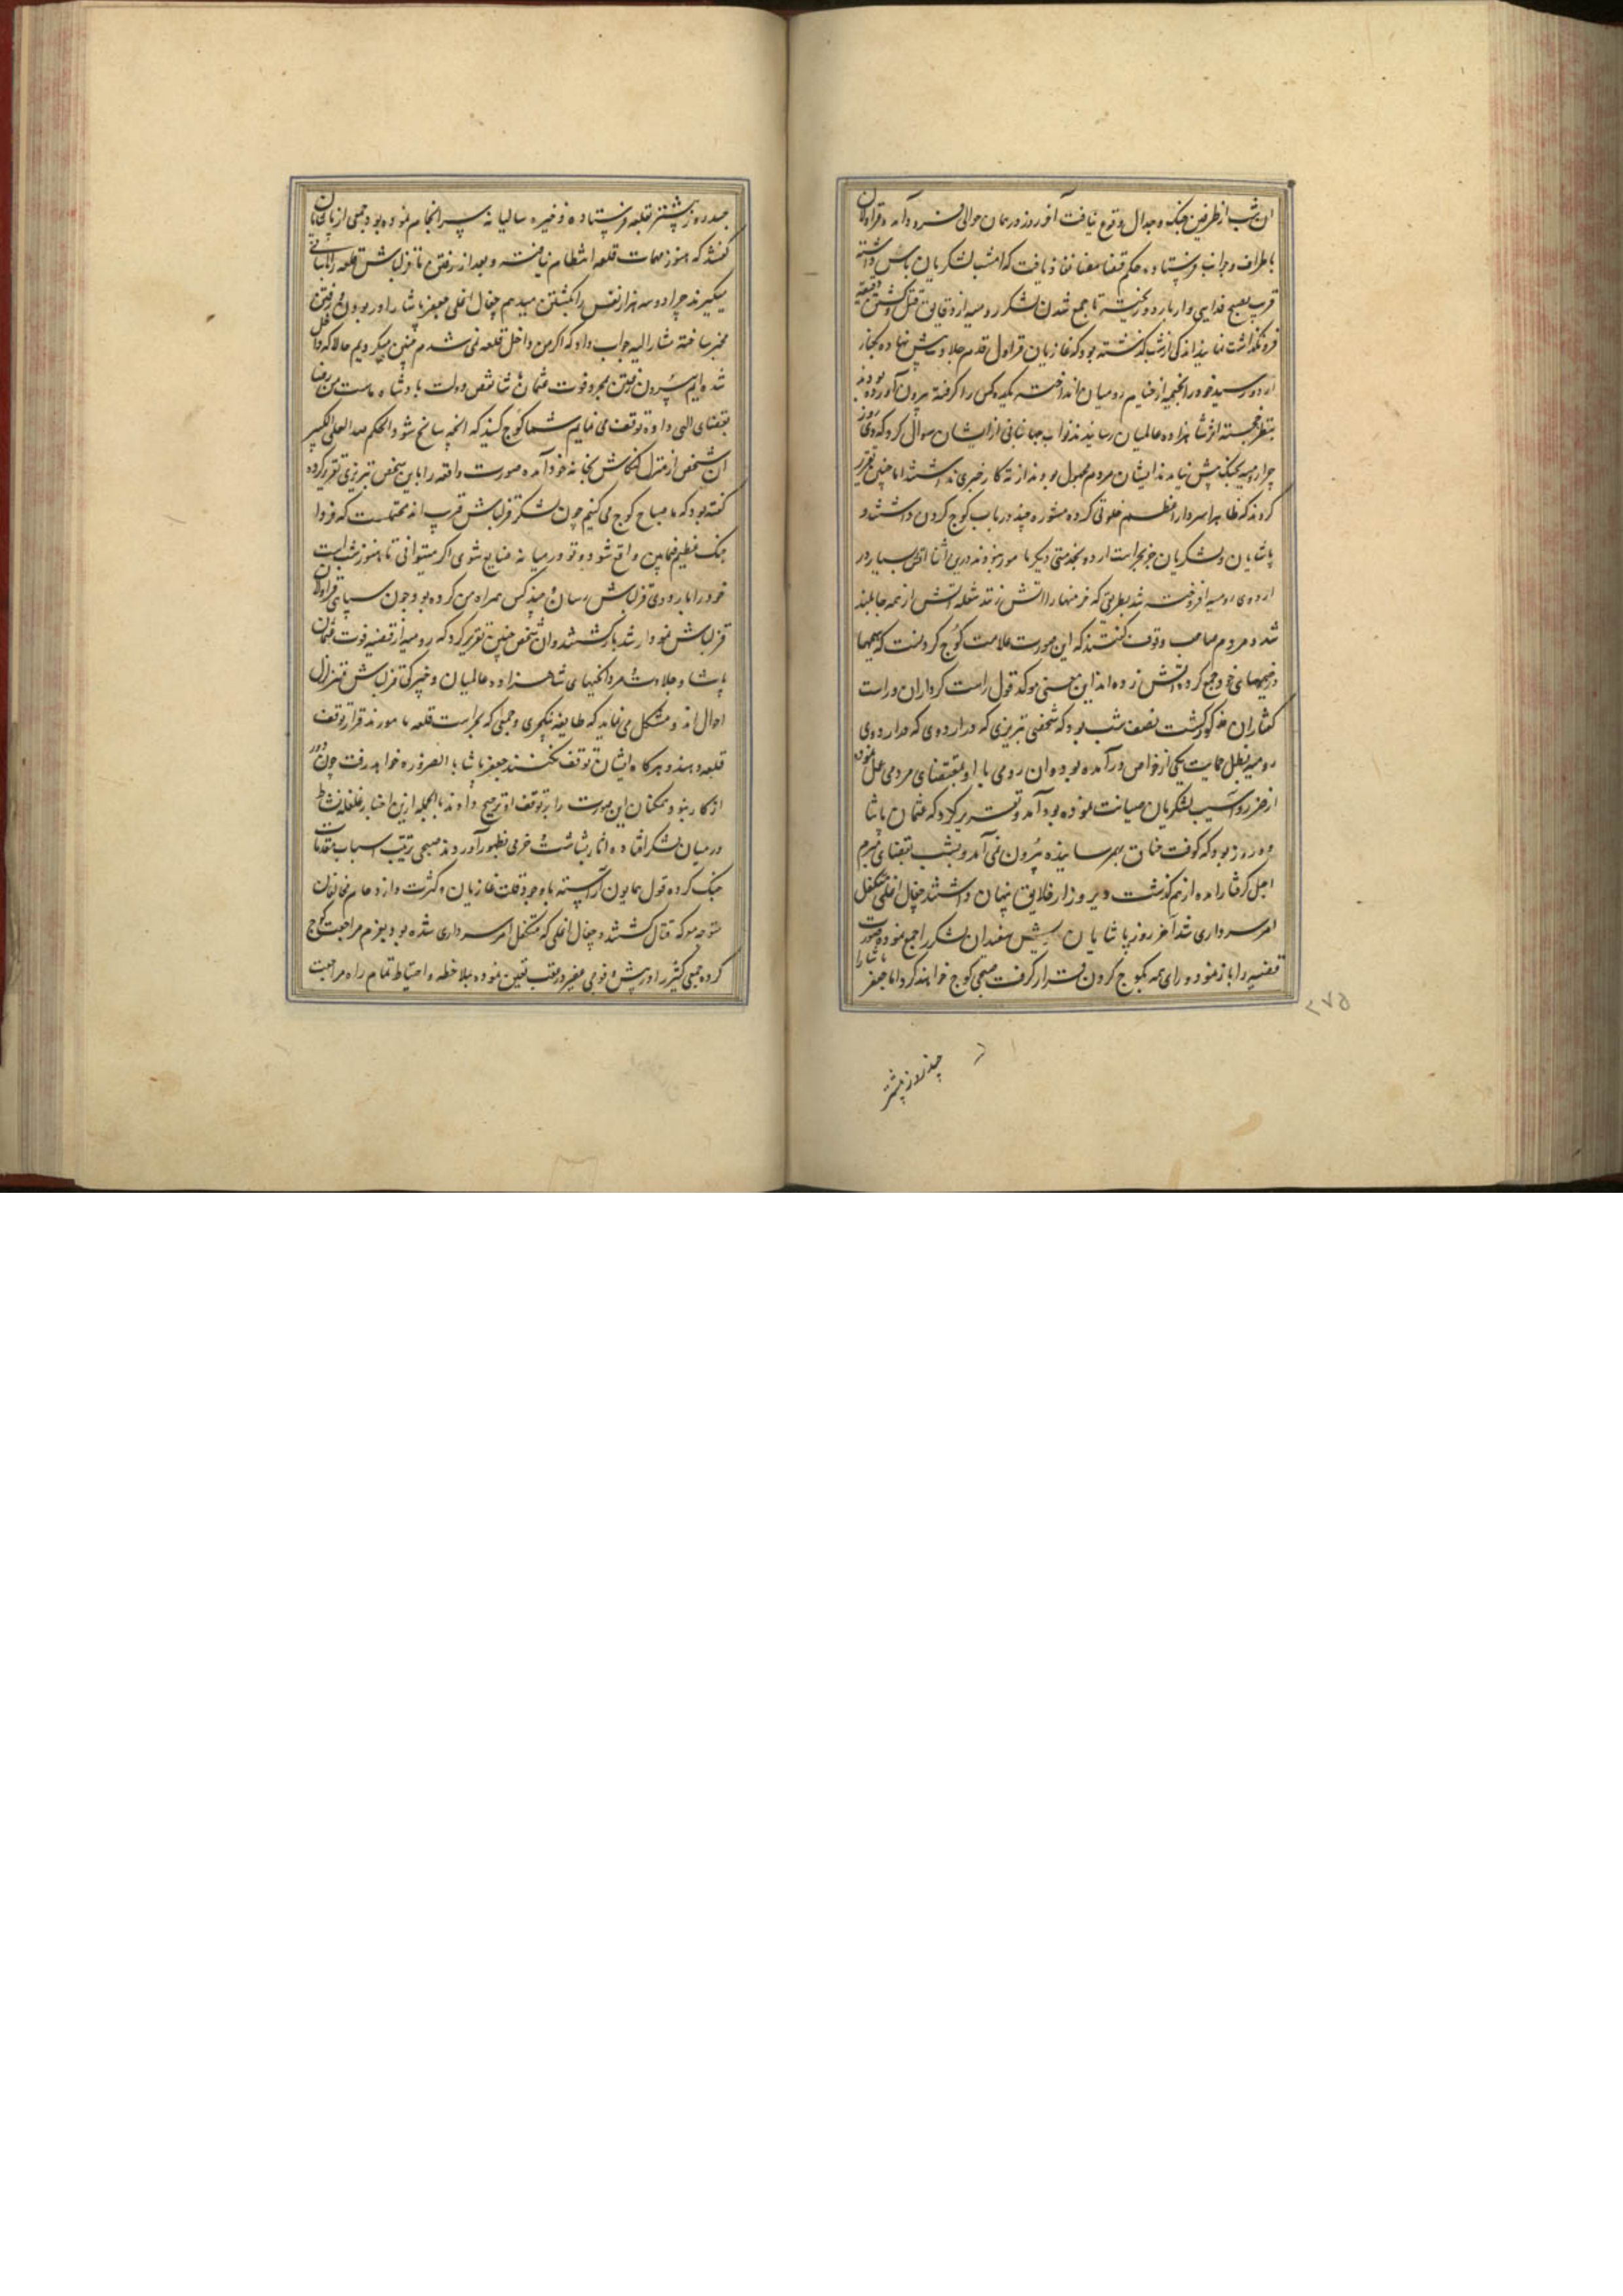 ان شب از طرفین جنگ و جدال وقوع نیافت آخر روز در همان حوالی فرود آمده قراولان
باطراف و جوانب فرستاده حکم قضا مضا نفاذ یافت که امشب لشکریان پاس داشته
قریب بصبح فدایی وار باردو ریخته تا جمع شدن لشکر رومیه از دقایق قتل و کشتن دقیقه
فرو نگذاشت نمایند اندکی از شب گذشته بود که غازیان قراول قدم جلادت پیش نهاده بکنار
اردو رسیده خود را بخیمه از خیام رومیان انداخته یکدو کس را گرفته بیرون آورده بودند
بنظر خجسته اثر شاهزاده عالمیان رسانیدند نواب جهانبانی از ایشان سوال کرد که دی روز
چرا رومیه بجنگ پیش نیامدند ایشان مردم مجهول بودند از ته کار خبری نداشتند اما چنین تقریر
کردند که ظاهرا سردار اعظم خلوتی کرده مشوره چند در باب کوچ کردن داشتند و
پاشایان و لشکریان جز بحراست اردو بخدمتی دیگر مامور نبودند درین اثنا اتش بسیار در
اردوی رومیه افروخته شد بطریقی که خرمنها را اتش زنند شعله اتش از همه جا بلند
شد و مردم صاحب وقوف گفتند که این صورت علامت کوچ کردنست که هیمها
و خیمهای خود جمع کرده اتش زده اند این معنی موکد قول راست کرداران و راست
گفتاران مذکور گشت نصف شب بود که شخصی تبریزی که در اردوی که در اردوی
رومیه بظل حمایت یکی از خواص درآمده بوده ان رومی با او بمقتضای مردمی عمل نموده
از ضرر و آسیب لشکریان صیانت نموده بود آمد و تقریر کرد که عثمان پاشا
ده روز بود که کوفت خناق بهمرسانیده بیرون نمی آمد و بشب بقضای مبرم
اجل گرفتار امده از هم گذشت و دیروز از خلایق پنهان داشتند چغال اغلی متکفل
امر سرداری شد آخر روز پاشایان ریش سفندان لشکر را جمع نموده صورت
قضیه را باز نموده و رای همه بکوچ کردن قرار گرفت صبحی کوچ خواهند کرد اما جعفر پاشا را
چند روز پیشتر
۲۷۵
چند روز پیشتر بقلعه فرستاده ذخیره سالیانه سرانجام نموده بود جمعی از پاشایان
گفتند که هنوز مهمات قلعه انتظام نیافته و بعد از رفتن ما قزلباش قلعه را باسانی
میگیرند چرا دو سه هزار نفس را بکشتن میدهیم چغال اغلی جعفر پاشا را در بودن و رفتن
مخیر ساخته مشار الیه جواب داد که اگر من داخل قلعه نمی شدم چنین میکردیم حالا که داخل
شده ایم بیرون رفتن بمجرد فوت عثمان پاشا نقص دولت پادشاه ماست من رضا
بقضای الهی داده توقف می نمایم شما کوچ کنید که انچه سانح شود الحکم لله العلی الکبیر
ان شخص از منزل کنکاش بخانه خود آمده صورت واقعه را باین شخص تبریزی تقریر کرده
گفته بود که ما صباح کوچ می کنیم چون لشکر قزلباش قریب اند محتملست که فردا
جنک عظیم فیمابین واقع شود و تو در میانه ضایع شوی اگر میتوانی تا هنوز شب است
خود را باردوی قزلباش رسان و چند کس همراه من کرده بود چون سیاهی قراولان
قزلباش نمودار شد باز گشتند و ان شخص چنین تقریر کرد که رومیه از قضیه فوت عثمان
پاشا و جلادت و مردانگیهای شاهزاده عالمیان و خیرگی قزلباش متزلزل
احوال اند و مشکل می نماید که طایفه ینکچری و جمعی که بحراست قلعه مامورند قرار توقف
قلعه دهند و هرگاه ایشان توقف نکنند جعفر پاشا بالضروره خواهد رفت چون دور
از کار بنود همکنان این صورت را بر توقف او ترجیح دادند بالجمله ازین اخبار غلغله نشاط
در میان لشکر افتاده اثار بشاشت و خرمی بظهور آوردند صبحی ترتیب اسباب مقدمات
جنک کرده قول همایون آراسته با وجود قلت غازیان و کثرت و ازدحام مخالفان
متوجه معرکه قتال گشتند و چغال اغلی که متکفل امر سرداری شده بود بعزم مراجعت کوچ
کرده جمعی کثیر را در پیش و فوجی مقرر در عقب تعین نموده بملاحظه و احتیاط تمام راه مراجعت